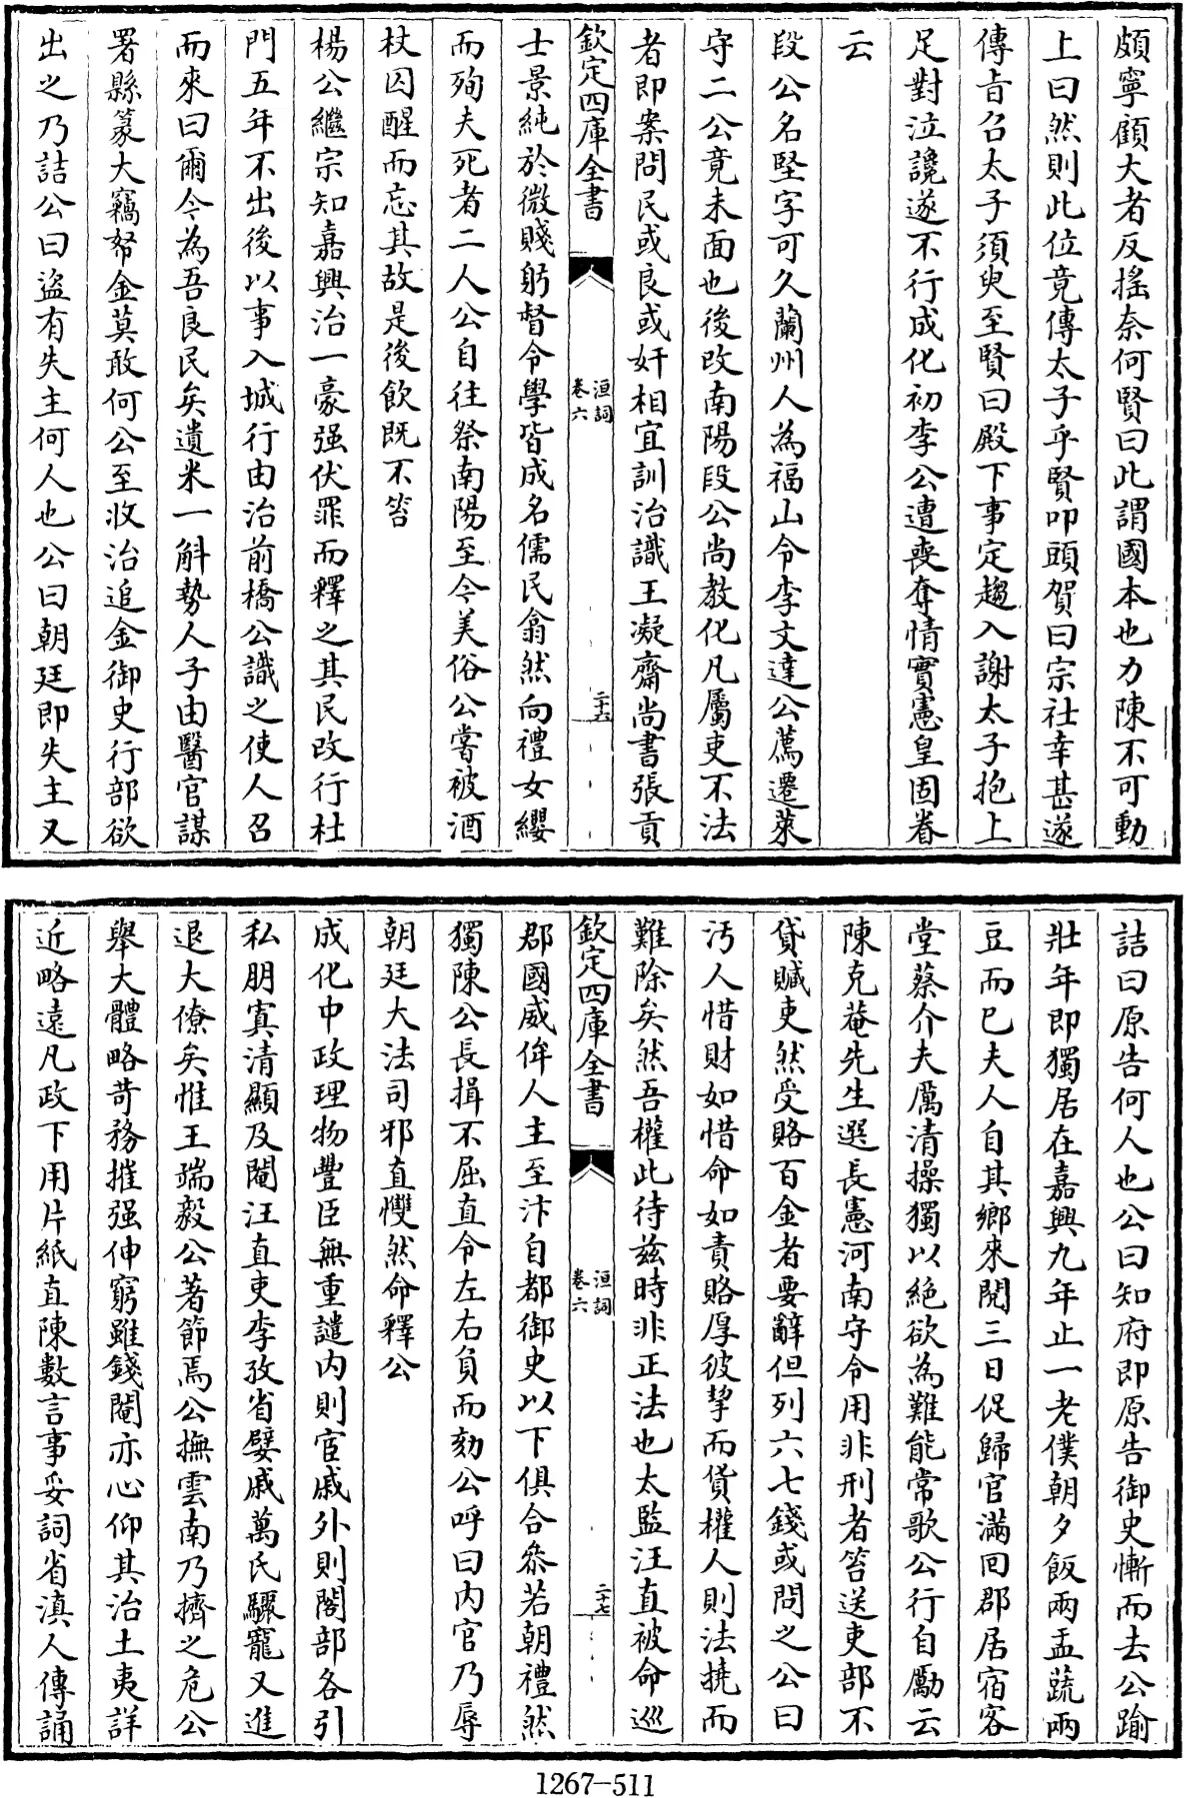 頗寧顧大者反搖奈何賢曰此謂國本也力陳不可動
上曰然則此位竟傳太子乎賢叩頭賀曰宗社幸甚遂
傳旨召太子須臾至賢曰殿下事定趨入謝太子抱上
足對泣讒遂不行成化初李公遭喪奪情實憲皇固眷
云
段公名堅字可久蘭州人為福山令李文達公薦遷萊
守二公竟未面也後改南陽段公尚教化凡屬吏不法
者即案問民或良或奸相宜訓治識王凝齋尚書張貢
欽定四庫全書
洹詞
卷六
二十六
士景純於微賤躬督令學皆成名儒民翕然向禮女纓
而殉夫死者二人公自往祭南陽至今美俗公嘗被酒
杖囚醒而忘其故是後飲既不笞
楊公繼宗知嘉興治一豪强伏罪而釋之其民改行杜
門五年不出後以事入城行由治前橋公識之使人召
而來曰爾今為吾良民矣遺米一斛勢人子由醫官謀
署縣篆大竊帑金莫敢何公至收治追金御史行部欲
出之乃詰公曰盜有失主何人也公曰朝廷即失主又
詰曰原告何人也公曰知府即原告御史慚而去公踰
壯年即獨居在嘉興九年止一老僕朝夕飯兩盂蔬兩
豆而已夫人自其鄉來閱三日促歸官滿回郡居宿客
堂蔡介夫厲清操獨以絕欲為難能常歌公行自勵云
陳克菴先生選長憲河南守令用非刑者笞送吏部不
貸贓吏然受賂百金者要辭但列六七錢或問之公曰
汚人惜財如惜命如責賂厚彼挈而貨權人則法撓而
難除矣然吾權此待兹時非正法也太監汪直被命巡
欽定四庫全書
洹詞
卷六
二十七
郡國威侔人主至汴自都御史以下俱合叅若朝禮然
獨陳公長揖不屈直令左右負而劾公呼曰内官乃辱
朝廷大法司邪直戄然命釋公
成化中政理物豐臣無重譴内則宦戚外則閣部各引
私朋寘清顯及閹汪直吏李孜省嬖戚萬氏驟寵又進
退大僚矣惟王端毅公著節焉公撫雲南乃擠之危公
舉大體略苛務摧强伸窮雖錢閹亦心仰其治土夷詳
近略遠凡政下用片紙直陳數言事妥詞省滇人傳誦
1267-511